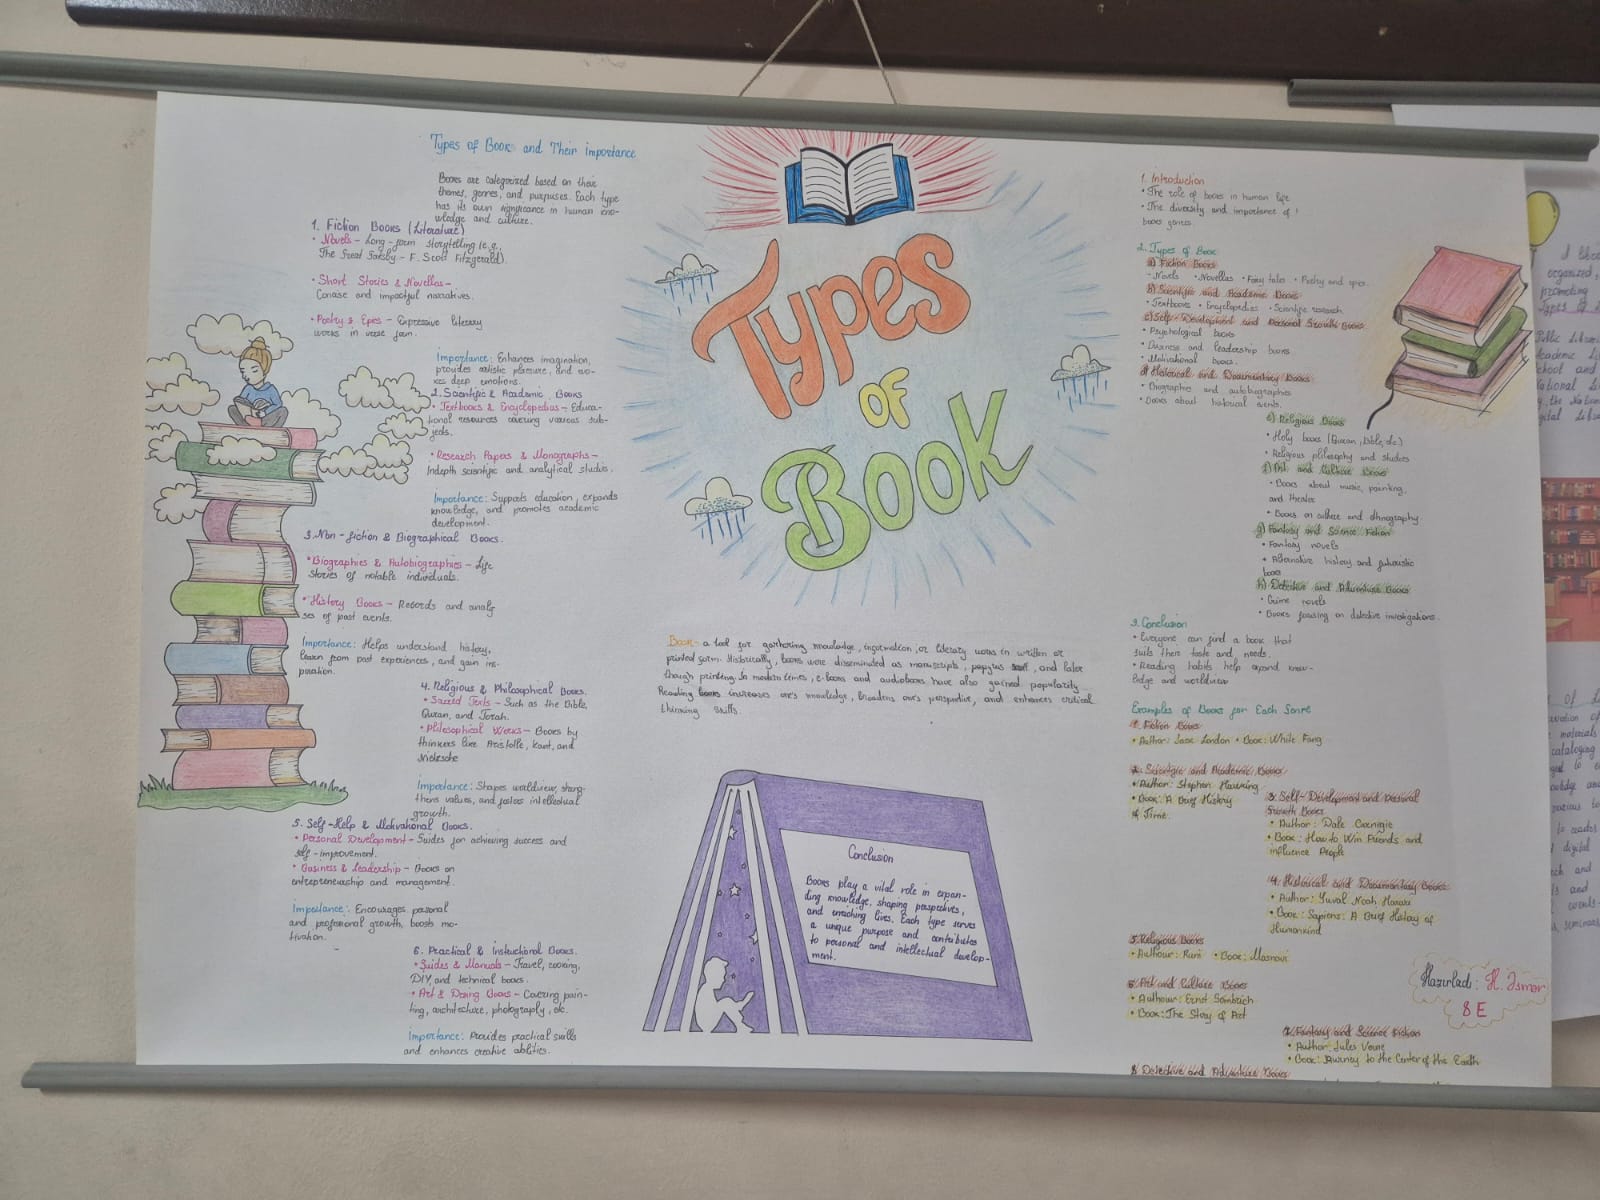 Types of Book and Their importance
Books are categorized based on their
themes, genres, and purpuses. Each type
has its own significance in human kno-
wledge and culture.
1. Fiction Books (Literature)
• Novels – Long-form storytelling (e.g.,
The Great Gatsby – F. Scott Fitzgerald).
• Short Stories & Novellas –
Concise and impactful narratives.
• Poetry & Epics – Expressive literary
works in verse form.
Importance: Enhances imagination,
provides artistic pleasure, and evo-
kes deep emotions.
2. Scientific & Academic Books
• Textbooks & Encyclopedias – Educa-
tional resources covering various sub-
jects.
• Research Papers & Monographs –
Indepth scientific and analytical studies.
Importance: Supports education, expands
knowledge, and promotes academic
development.
3. Non-fiction & Biographical Books.
• Biographies & Autobiographies – Life
stories of notable individuals.
• History Books – Records and analy
ses of past events.
Importance: Helps understand history,
learn from past experiences, and gain ins-
piration.
4. Religious & Philosophical Books.
• Sacred Texts – Such as the Bible,
Quran, and Torah.
• Philosophical Works – Books by
thinkers like Aristotle, Kant, and
Nietzsche
Importance: Shapes worldview, streng-
thens values, and fosters intellectual
growth.
5. Self-Help & Motivational Books.
• Personal Development – Guides for achieving success and
self-improvement.
• Business & Leadership – Books on
entrepreneurship and management.
Importance: Encourages personal
and professional growth, boosts mo-
tivation.
6. Practical & Instructional Books.
• Guides & Manuals – Travel, cooking,
DIY, and technical books.
• Art & Desing Books – Covering pain-
ting, architecture, photography, etc.
Importance: Provides practical skills
and enhances creative abilities.
Types
OF
Book
Book – a tool for gathering knowledge, information, or literary works in written or
printed form. Historically, books were disseminated as manuscripts, papyrus, and later
though printing. In modern times, e-books and audiobooks have also gained popularity.
Reading books increases one's knowledge, broadens one's perspective, and enhances critical
thinking skills.
Conclusion
Books play a vital role in expan-
ding knowledge, shaping perspectives,
and enriching lives. Each type serves
a unique purpose and contributes
to personal and intellectual develop-
ment.
1. Introduction
• The role of books in human life
• The diversity and importance of
books genres.
2. Types of Book
a) Fiction Books
• Novels • Novellas • Fairy tales • Poetry and epics.
b) Scientific and Academic Books
• Textbooks • Encyclopedias • Scientific research
c) Self-Development and Personal Growth Books
• Psychological books
• Business and leadership books
• Motivational books.
d) Historical and Documentary Books
• Biographies and autobiographies
• Books about historical events.
e) Religious Books
• Holy books (Quran, Bible, etc.)
• Religious philosophy and studies
f) Art and Culture Books
• Books about music, painting,
and theater
• Books on culture and ethnography.
g) Fantasy and Science Fiction
• Fantasy novels
• Alternative history and futuristic
books
h) Detective and Adventure Books
• Crime novels
• Books focusing on detective investigations.
3. Conclusion
• Everyone can find a book that
suits their taste and needs.
• Reading habits help expand know-
ledge and worldview
Examples of Books for Each Genre
1. Fiction Books
• Author: Jack London • Book: White Fang
2. Scientific and Academic Books
• Author: Stephen Hawking
• Book: A Brief History
of Time.
3. Self-Development and Personal
Growth Books
• Author: Dale Carnegie
• Book: How to Win Friends and
influence People
4. Historical and Documentary Books
• Author: Yuval Noah Harari
• Book: Sapiens: A Brief History of
Humankind
5. Religious Books
• Authour: Rumi • Book: Masnavi
6. Art and Culture Books
• Authour: Ernst Gombrich
• Book: The Story of Art
7. Fantasy and Science Fiction
• Author: Jules Verne
• Book: Journey to the Center of the Earth
8. Detective and Adventure Books
Hazırladı: H. İsmər
8 E